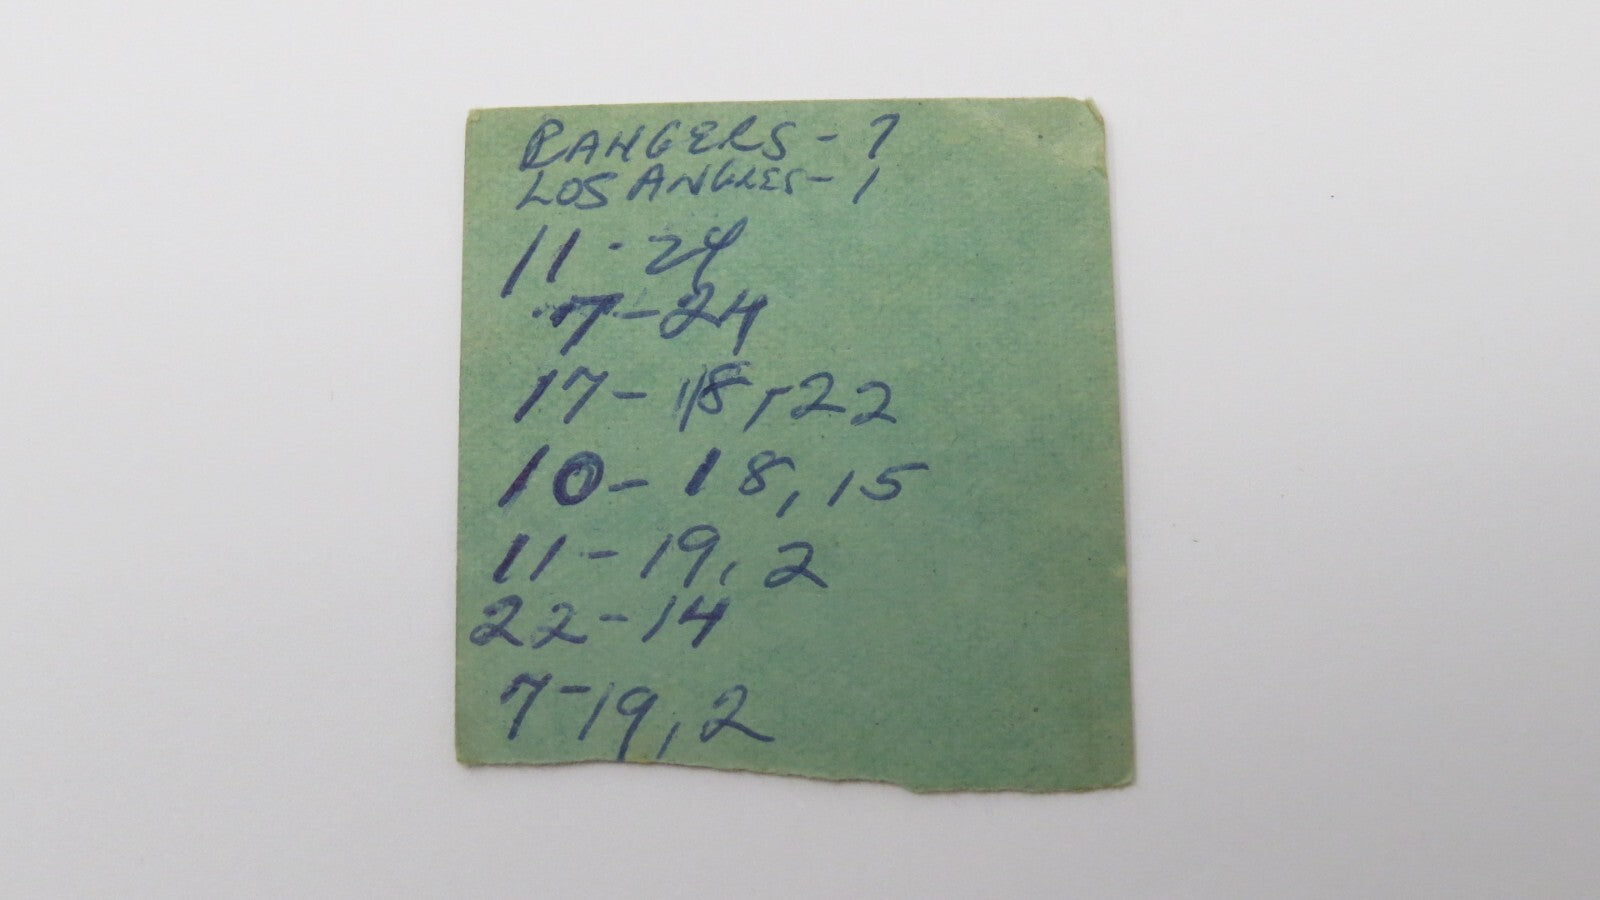 RANGERS - 7
LOS ANGLES - 1
11 - 24
7 - 24
17 - 18, 22
10 - 18, 15
11 - 19, 2
22 - 14
7 - 19, 2